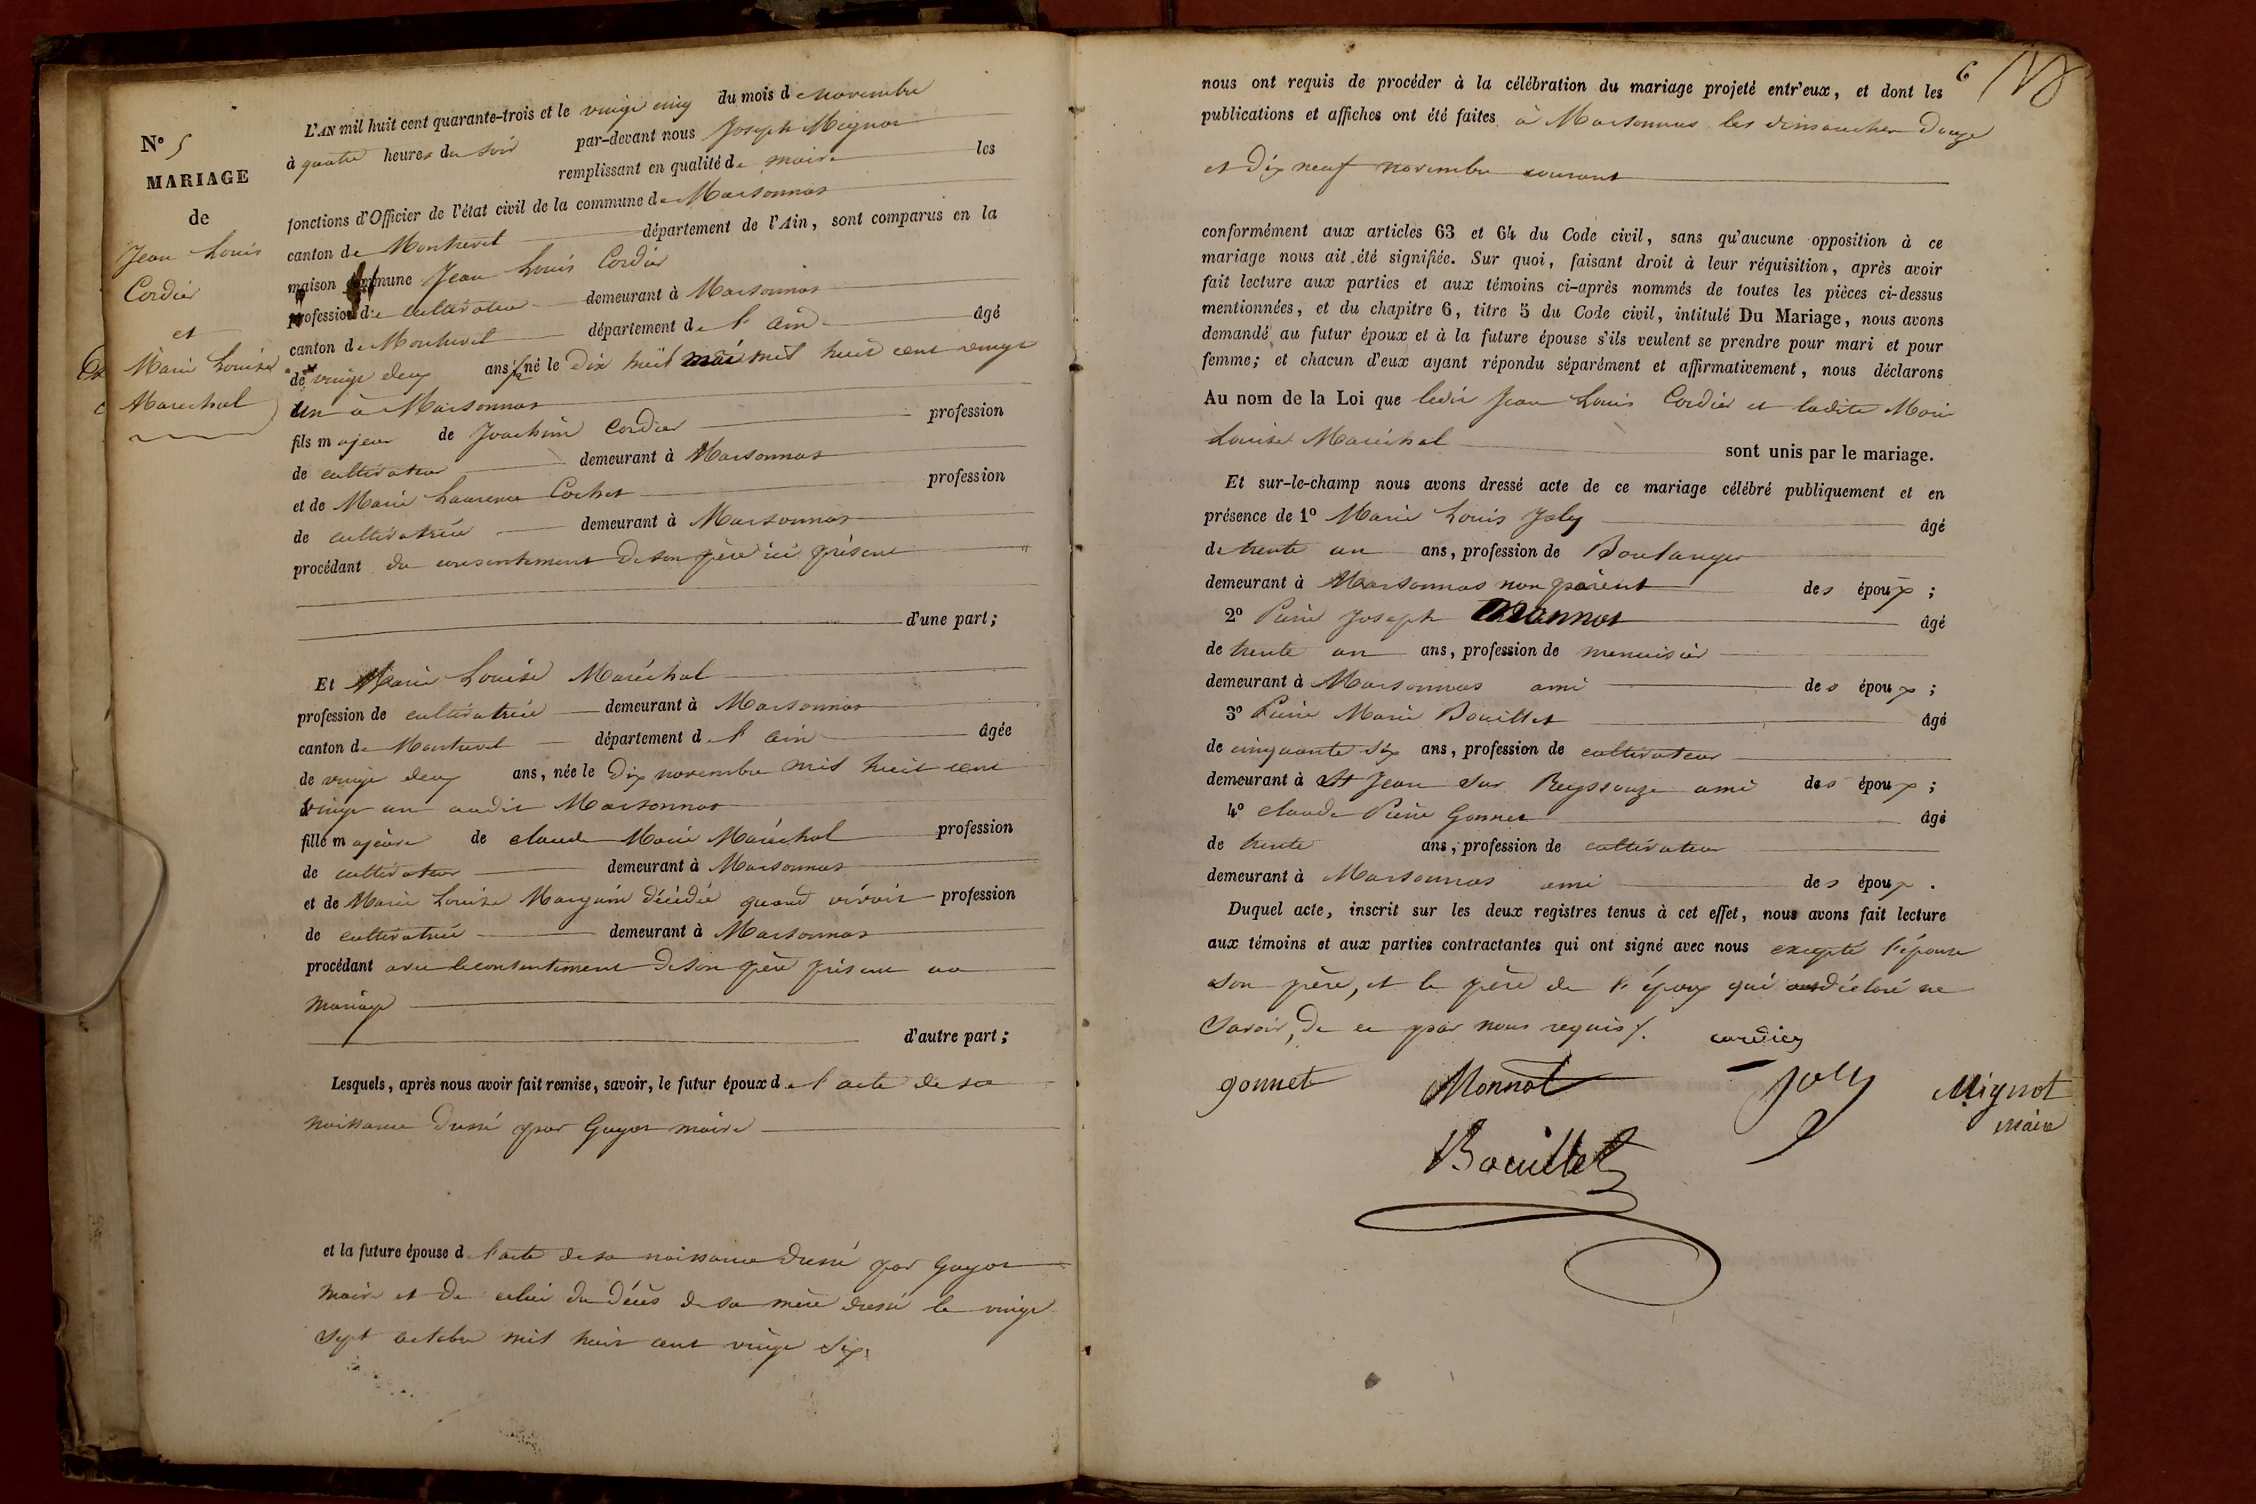 N° 5
MARIAGE
de
Jean Louis
Cordier
et
Marie Louise
Marechal
L'AN mil huit cent quarante-trois et le vingt cinq du mois de novembre
à quatre heures du soir par-devant nous Joseph Mignot
remplissant en qualité de maire les
fonctions d'Officier de l'état civil de la commune de Marsonnas
canton de Montrevel département de l'Ain, sont comparus en la
maison commune Jean Louis Cordier
profession de cultivateur demeurant à Marsonnas
canton de Montrevel département de l'ain âgé
de vingt deux ans, né le dix huit mai mil huit cent vingt
un à Marsonnas
fils majeur de Joachim Cordier profession
de cultivateur demeurant à Marsonnas
et de Marie Laurence Cochet profession
de cultivatrice demeurant à Marsonnas
procédant du consentement de son père ici présent
d'une part;
Et Marie Louise Maréchal
profession de cultivatrice demeurant à Marsonnas
canton de Montrevel département de l'ain âgée
de vingt deux ans, née le dix novembre mil huit cent
vingt un audit Marsonnas
fille majeure de claude Marie Maréchal profession
de cultivateur demeurant à Marsonnas
et de Marie Louise Manguin décédée quand vivoit profession
de cultivatrice demeurant à Marsonnas
procédant avec le consentement de son père présent au
mariage
d'autre part;
Lesquels, après nous avoir fait remise, savoir, le futur époux de l'acte de sa
naissance dressé par Guyot maire
et la future épouse d l'acte de sa naissance dressé par Guyot
maire et de celui du décès de sa mère dressé le vingt
sept octobre mil huit cent vingt six.
6
nous ont requis de procéder à la célébration du mariage projeté entr'eux, et dont les
publications et affiches ont été faites à Marsonnas les dimanches Douze
et dix neuf novembre courant
conformément aux articles 63 et 64 du Code civil, sans qu'aucune opposition à ce
mariage nous ait été signifiée. Sur quoi, faisant droit à leur réquisition, après avoir
fait lecture aux parties et aux témoins ci-après nommés de toutes les pièces ci-dessus
mentionnées, et du chapitre 6, titre 5 du Code civil, intitulé Du Mariage, nous avons
demandé au futur époux et à la future épouse s'ils veulent se prendre pour mari et pour
femme; et chacun d'eux ayant répondu séparément et affirmativement, nous déclarons
Au nom de la Loi que ledit Jean Louis Cordier et ladite Marie
Louise Maréchal sont unis par le mariage.
Et sur-le-champ nous avons dressé acte de ce mariage célébré publiquement et en
présence de 1° Marie Louis Joly âgé
de trente un ans, profession de Boulanger
demeurant à Marsonnas non parent des époux;
2° Pierre Joseph Monnot âgé
de trente un ans, profession de menuisier
demeurant à Marsonnas ami des époux;
3° Pierre Marie Bouillet âgé
de cinquante six ans, profession de cultivateur
demeurant à St Jean sur Reyssouze ami des époux;
4° claude Pierre Gonnet âgé
de trente ans, profession de cultivateur
demeurant à Marsonnas ami des époux.
Duquel acte, inscrit sur les deux registres tenus à cet effet, nous avons fait lecture
aux témoins et aux parties contractantes qui ont signé avec nous excepté l'épouse
son père, et le père de l'époux qui ont déclaré ne
savoir, de ce par nous requis.
cordier
gonnet Monnot Joly Mignot
maire
Bouillet